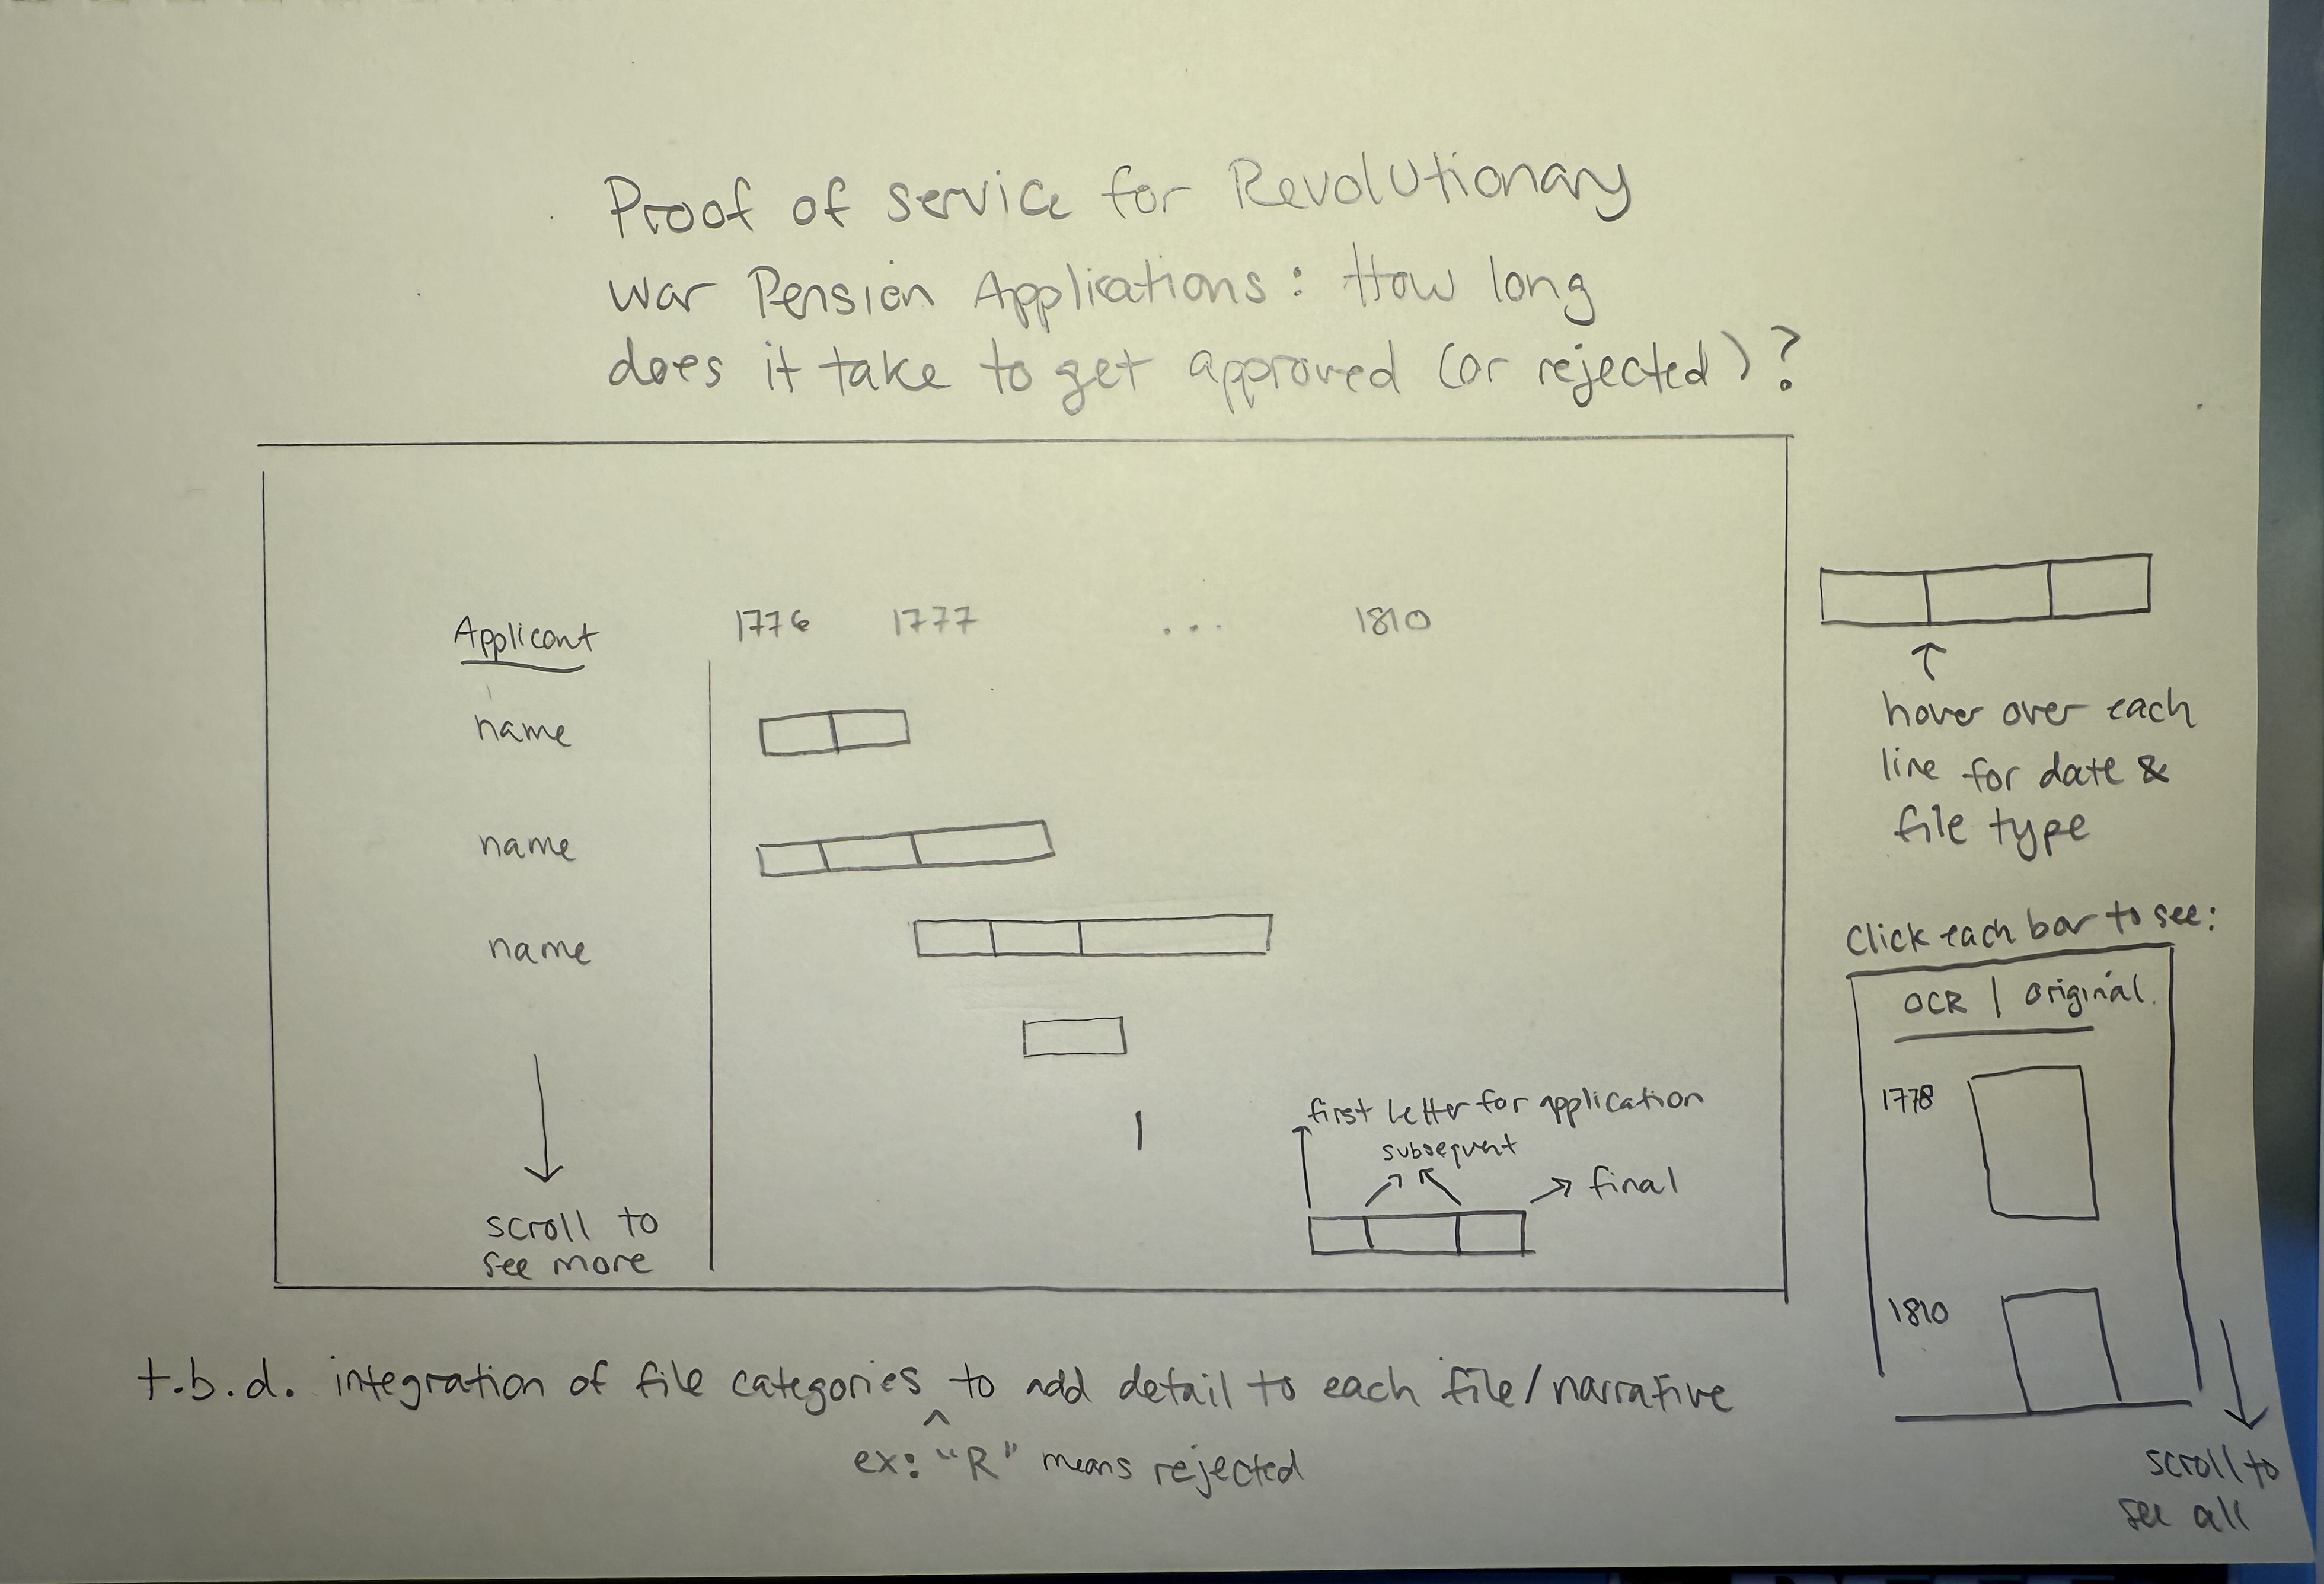 Proof of service for Revolutionary
war Pension Applications: How long
does it take to get approved (or rejected)?
Applicant
1776 1777 ... 1810
name
name
name
scroll to
see more
first letter for application
subsequent
final
hover over each
line for date &
file type
Click each bar to see:
OCR | original.
1778
1810
scroll to
see all
t.b.d. integration of file categories ^ to add detail to each file/narrative
ex: "R" means rejected